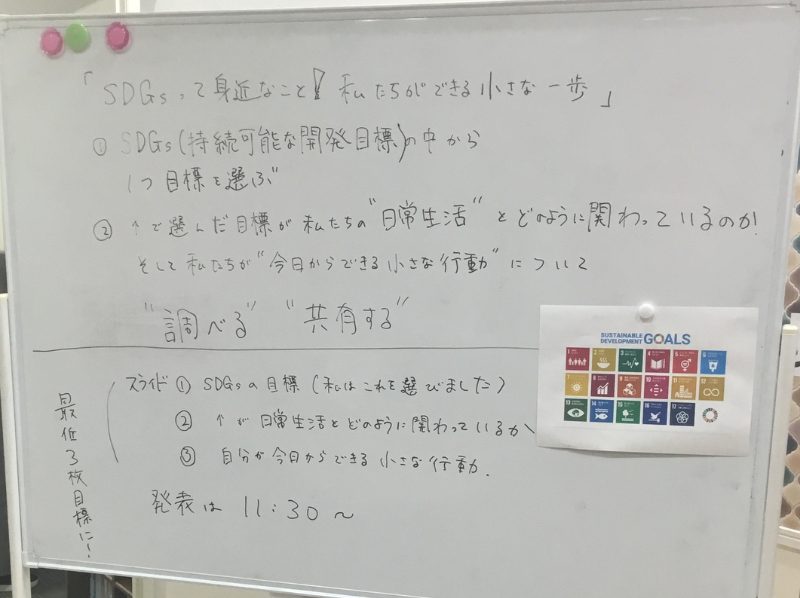 「SDGsって身近なこと! 私たちができる小さな一歩」
① SDGs(持続可能な開発目標)の中から
1つ目標を選ぶ
② ↑で選んだ目標が私たちの"日常生活"とどのように関わっているのか
そして私たちが"今日からできる小さな行動"について
"調べる" "共有する"
スライド ① SDGsの目標(私はこれを選びました)
② ↑が日常生活とどのように関わっているか
③ 自分が今日からできる小さな行動.
発表は 11:30~
最低3枚目標に!
SUSTAINABLE DEVELOPMENT GOALS
1 2 3 4 5 6
8 9 10 11 12
13 14 15 16 17